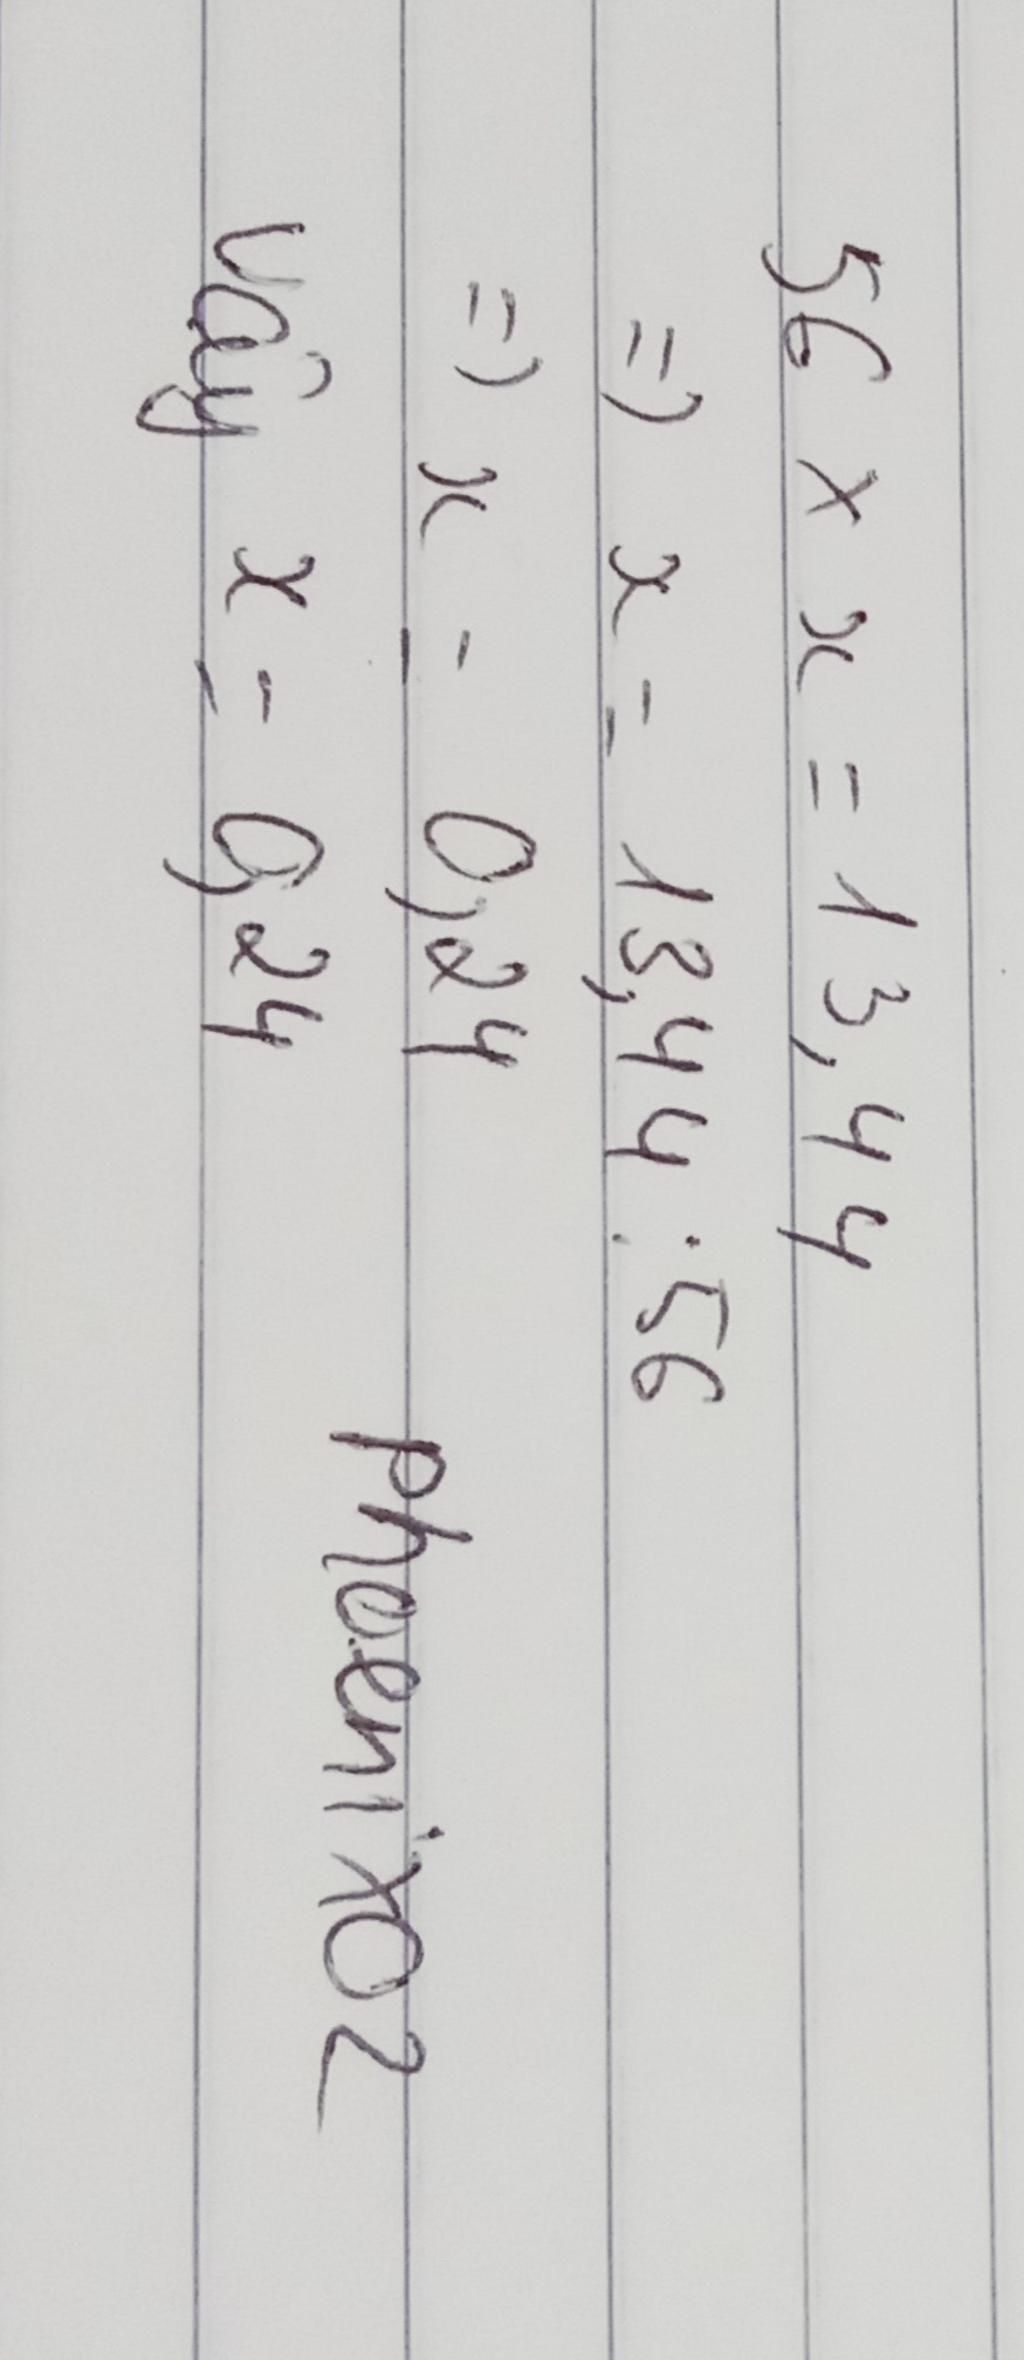 56 x x = 13,44
=) x = 13,44 : 56
=) x = 0,24
Vậy x = 0,24
Phoenix02